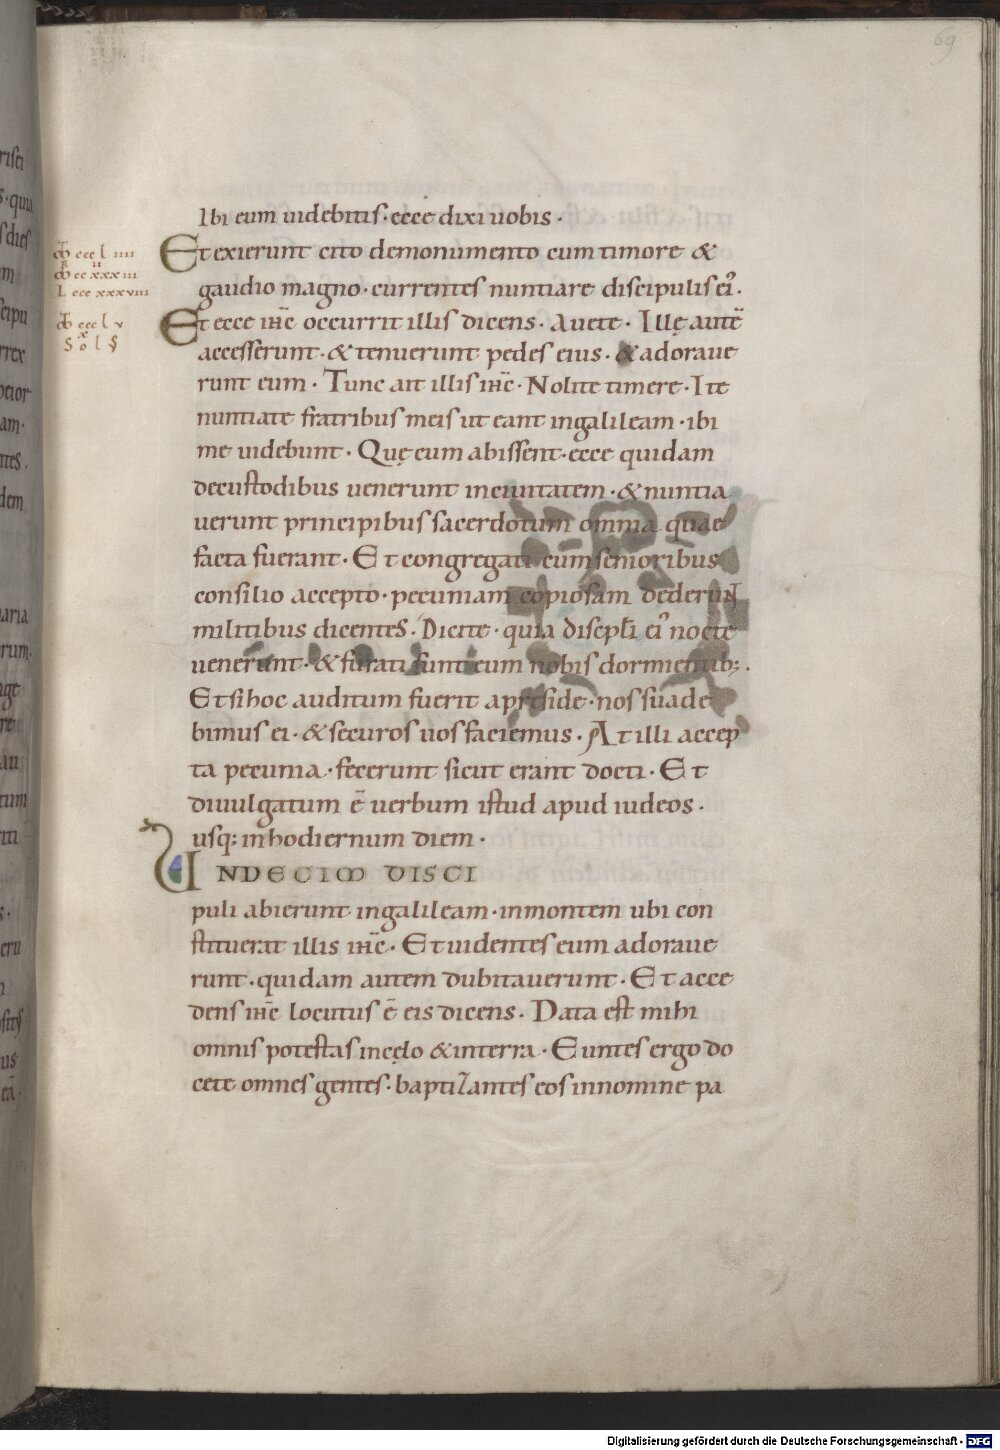 69
Ibi eum uidebitis · ecce dixi uobis ·
Et exierunt cito demonumento cum timore &
gaudio magno · currentes nuntiare discipulis ei᾽ ·
Et ecce ihc̄ occurrit illis dicens · Auete · Illę autē
accesserunt · & tenuerunt pedes eius · & adoraue
runt eum · Tunc ait illis ihc̄ · Nolite timere · Ite
nuntiate fratribus meis ut eant ingalileam · ibi
me uidebunt · Quę cum abissent · ecce quidam
decustodibus uenerunt inciuitatem · & nuntia
uerunt principibus sacerdotum omnia quae
facta fuerant · Et congregati cum senioribus
consilio accepto · pecuniam copiosam dederunt
militibus dicentes · Dicite · quia discipli ei᾽ nocte
uenerunt · & furati sunt eum nobis dormientib; ·
Et si hoc auditum fuerit apreside · nos suade
bimus ei · & securos uos faciemus · At illi accep
ta pecunia · fecerunt sicut erant docti · Et
diuulgatum ē uerbum istud apud iudeos ·
usq; inhodiernum diem ·
UNDECIM DISCI
puli abierunt ingalileam · inmontem ubi con
stituerat illis ihc̄ · Et uidentes eum adoraue
runt · quidam autem dubitauerunt · Et acce
dens ihc̄ locutus ē eis dicens · Data est mihi
omnis potestas incęlo & interra · Euntes ergo do
cete omnes gentes · baptizantes eos innomine pa
Digitalisierung gefördert durch die Deutsche Forschungsgemeinschaft - DFG